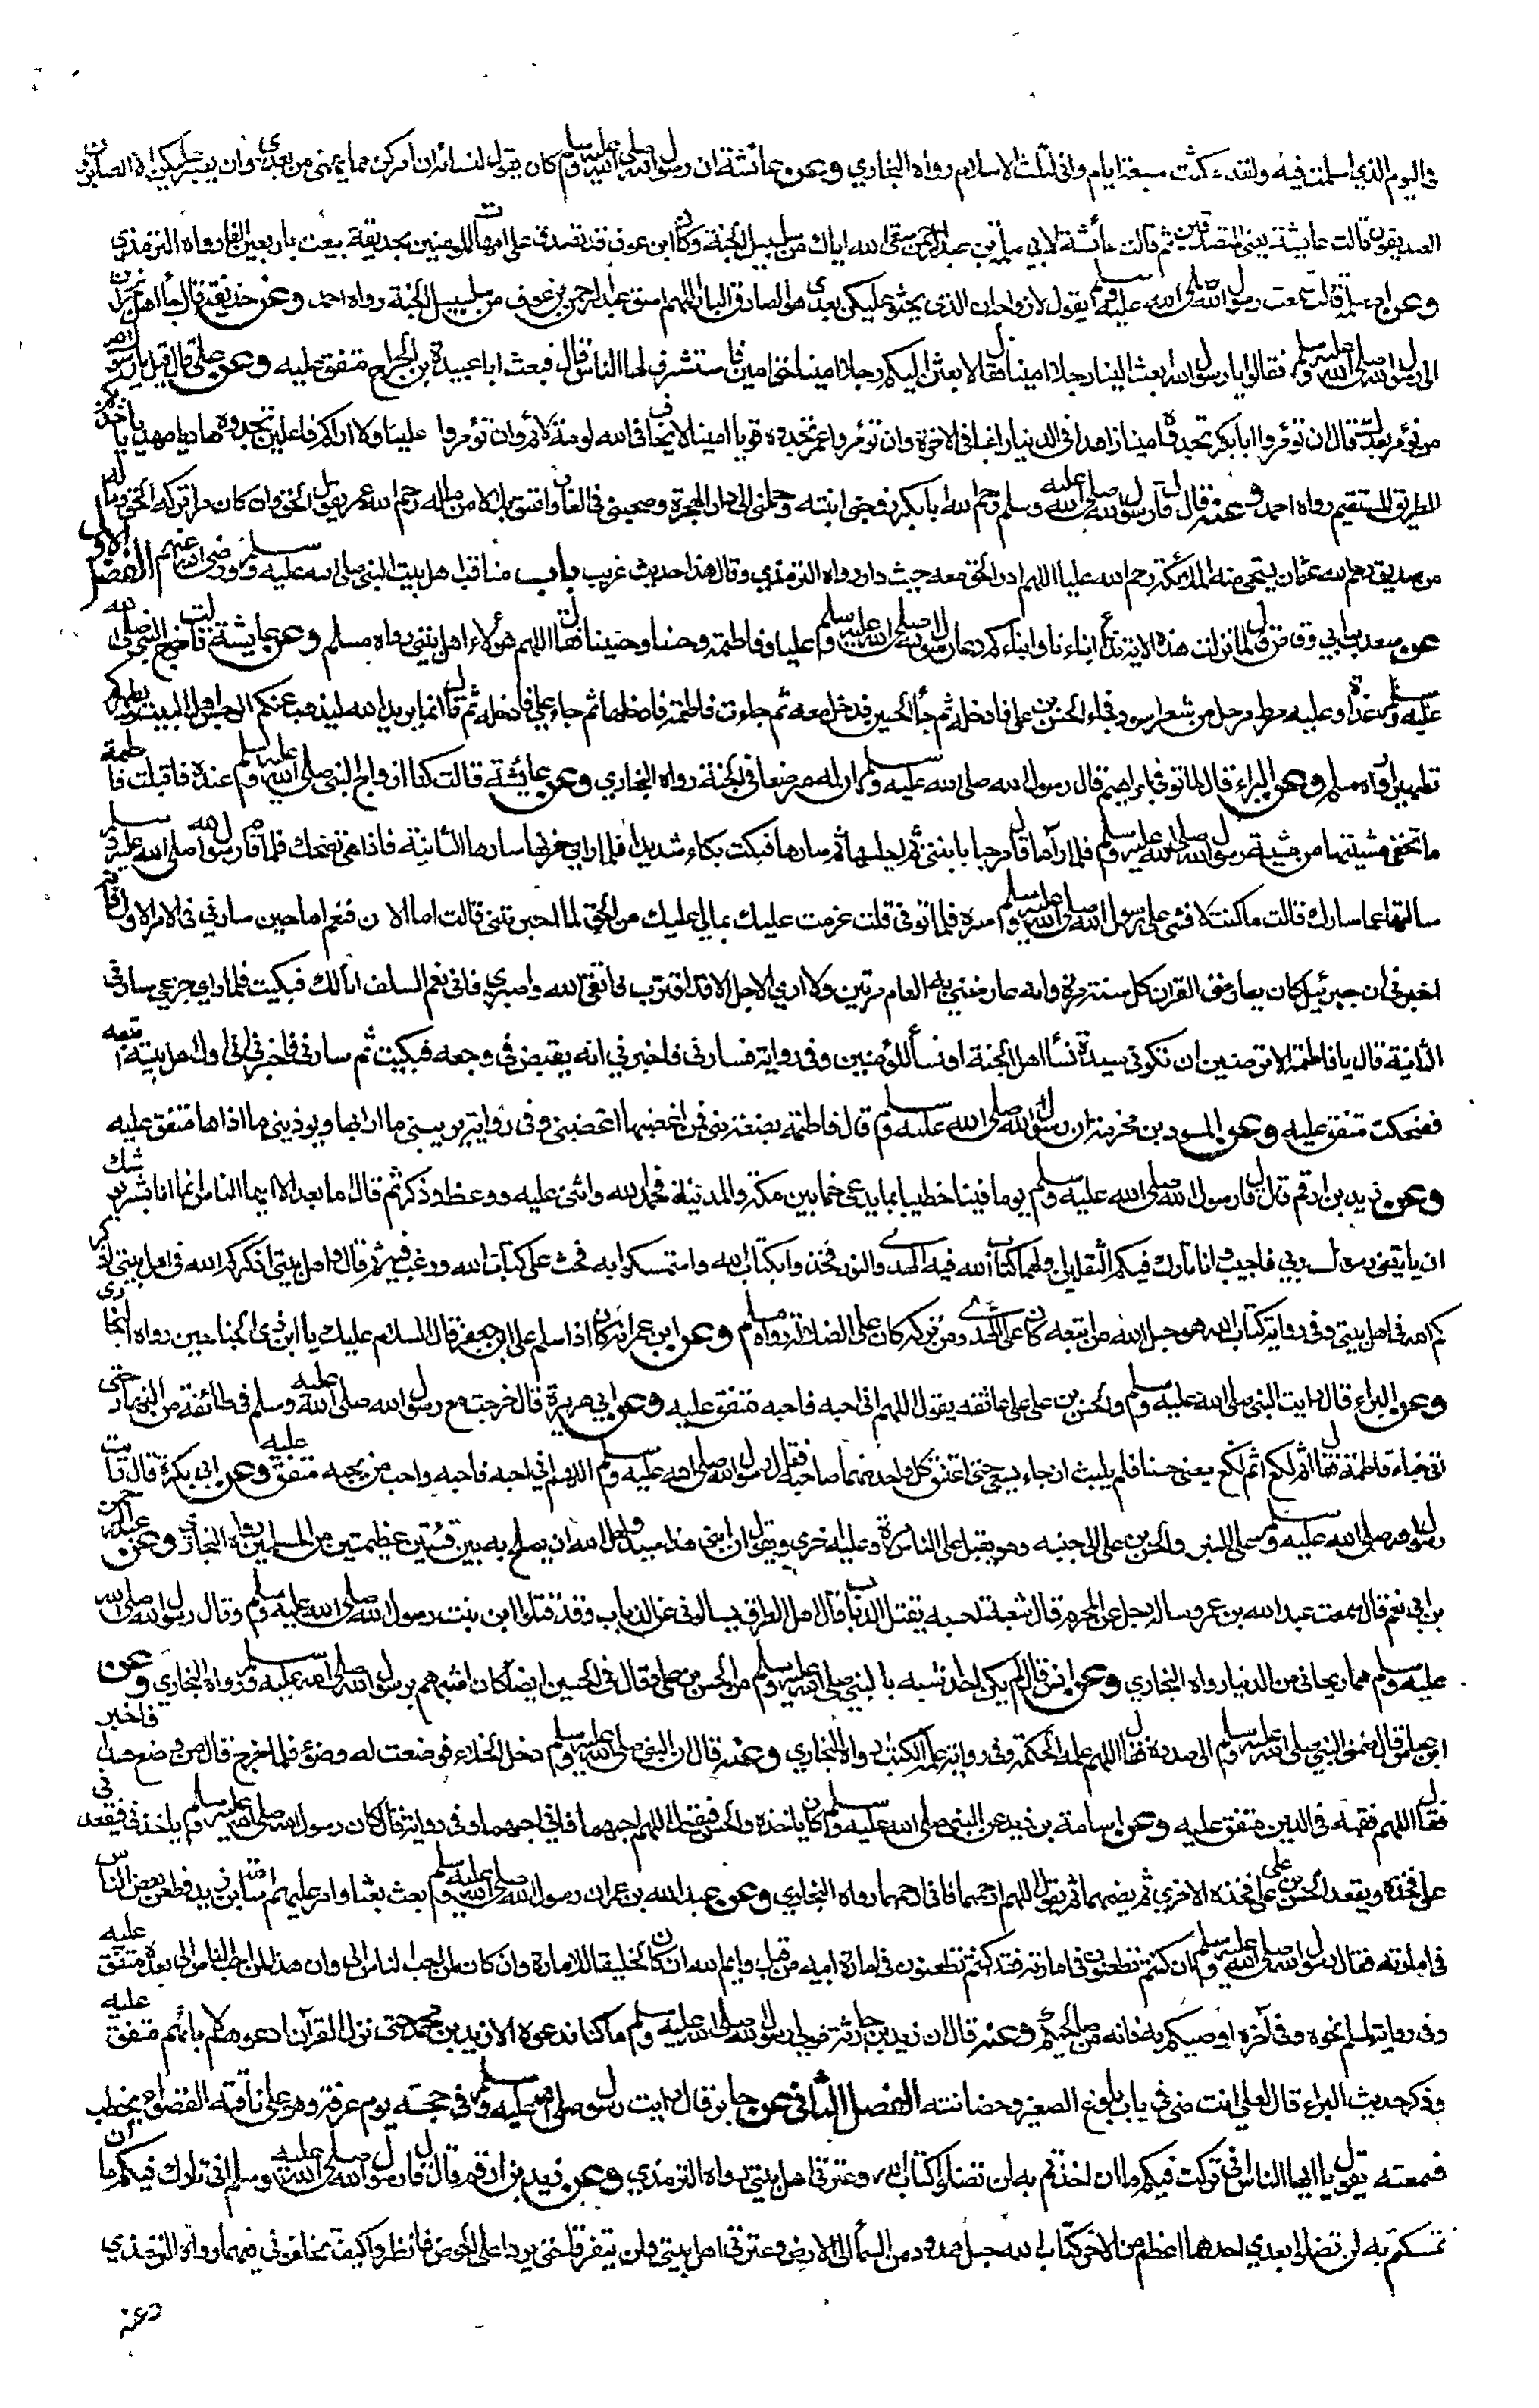 في اليوم الذي اسلمت فيه ولقد مكثت سبعة ايام واني لثلث الاسلام رواه البخاري وعن عائشة ان رسول الله صلى الله عليه وسلم كان يقول لنسائه ان امركن مما يهمني من بعدي ولن يصبر عليكن الا الصابرون
الصديقون قالت عايشة يعني المتصدقين ثم قالت عائشة لابي سلمة بن عبد الرحمن سقى الله اباك من سلسبيل الجنة وكان ابن عوف قد تصدق على امهات المومنين بحديقة بيعت باربعين الفا رواه الترمذي
وعن ام سلمة قالت سمعت رسول الله صلى الله عليه وسلم يقول لازواجه ان الذي يحثو عليكن بعدي هو الصادق البار اللهم اسق عبد الرحمن بن عوف من سلسبيل الجنة رواه احمد وعن حذيفة قال جاء اهل نجران
الى رسول الله صلى الله عليه وسلم فقالوا يا رسول الله ابعث الينا رجلا امينا فقال لابعثن اليكم رجلا امينا حق امين فاستشرف لها الناس قال فبعث ابا عبيدة بن الجراح متفق عليه وعن علي قال قيل يا رسول الله
من نؤمر بعدك قال ان تؤمروا ابا بكر تجدوه امينا زاهدا في الدنيا راغبا في الاخرة وان تؤمروا عمر تجدوه قويا امينا لا يخاف في الله لومة لائم وان تؤمروا عليا ولا اراكم فاعلين تجدوه هاديا مهديا ياخذ بكم
الطريق المستقيم رواه احمد وعنه قال قال رسول الله صلى الله عليه وسلم رحم الله ابا بكر زوجني ابنته وحملني الى دار الهجرة وصحبني في الغار واعتق بلالا من ماله رحم الله عمر يقول الحق وان كان مرا تركه الحق وما له
من صديق رحم الله عثمان يستحي منه الملائكة رحم الله عليا اللهم ادر الحق معه حيث دار رواه الترمذي وقال هذا حديث غريب باب مناقب اهل بيت النبي صلى الله عليه وسلم ورضي الله عنهم الفصل الاول
عن سعد بن ابي وقاص قال لما نزلت هذه الاية ندع ابناءنا وابناءكم دعا رسول الله صلى الله عليه وسلم عليا وفاطمة وحسنا وحسينا فقال اللهم هؤلاء اهل بيتي رواه مسلم وعن عايشة قالت خرج النبي صلى الله
عليه وسلم غداة وعليه مرط مرحل من شعر اسود فجاء الحسن بن علي فادخله ثم جاء الحسين فدخل معه ثم جاءت فاطمة فادخلها ثم جاء علي فادخله ثم قال انما يريد الله ليذهب عنكم الرجس اهل البيت ويطهركم
تطهيرا رواه مسلم وعن البراء قال لما توفي ابراهيم قال رسول الله صلى الله عليه وسلم ان له مرضعا في الجنة رواه البخاري وعن عايشة قالت كنا ازواج النبي صلى الله عليه وسلم عنده فاقبلت فاطمة
ما تخفى مشيتها من مشية رسول الله صلى الله عليه وسلم فلما راها قال مرحبا بابنتي ثم اجلسها ثم سارها فبكت بكاء شديدا فلما راى حزنها سارها الثانية فاذا هي تضحك فلما قام رسول الله صلى الله عليه وسلم
سالتها عما سارك قالت ما كنت لافشي على رسول الله صلى الله عليه وسلم سره فلما توفي قلت عزمت عليك بمالي عليك من الحق لما اخبرتني قالت اما الان فنعم اما حين سارني في الامر الاول فانه
اخبرني ان جبرئيل كان يعارضني القران كل سنة مرة وانه عارضني به العام مرتين ولا ارى الاجل الا قد اقترب فاتقي الله واصبري فاني نعم السلف انا لك فبكيت فلما راى جزعي سارني
الثانية قال يا فاطمة الا ترضين ان تكوني سيدة نساء اهل الجنة او نساء المؤمنين وفي رواية فسارني فاخبرني انه يقبض في وجعه فبكيت ثم سارني فاخبرني اني اول اهل بيته اتبعه
فضحكت متفق عليه وعن المسور بن مخرمة ان رسول الله صلى الله عليه وسلم قال فاطمة بضعة مني فمن اغضبها اغضبني وفي رواية يريبني ما ارابها ويوذيني ما اذاها متفق عليه
وعن زيد بن ارقم قال قام رسول الله صلى الله عليه وسلم يوما فينا خطيبا بماء يدعى خما بين مكة والمدينة فحمد الله واثنى عليه ووعظ وذكر ثم قال اما بعد الا ايها الناس انما انا بشر يوشك
ان ياتيني رسول ربي فاجيب وانا تارك فيكم الثقلين اولهما كتاب الله فيه الهدى والنور فخذوا بكتاب الله واستمسكوا به فحث على كتاب الله ورغب فيه ثم قال واهل بيتي اذكركم الله في اهل بيتي اذكر
كم الله في اهل بيتي وفي رواية كتاب الله هو حبل الله من اتبعه كان على الهدى ومن تركه كان على الضلالة رواه مسلم وعن ابن عمر انه كان اذا سلم على ابن جعفر قال السلام عليك يا ابن ذي الجناحين رواه البخاري
وعن البراء قال رايت النبي صلى الله عليه وسلم والحسن بن علي على عاتقه يقول اللهم اني احبه فاحبه متفق عليه وعن ابي هريرة قال خرجت مع رسول الله صلى الله عليه وسلم في طائفة من النهار حتى
اتى خباء فاطمة فقال اثم لكع اثم لكع يعني حسنا فلم يلبث ان جاء يسعى حتى اعتنق كل واحد منهما صاحبه فقال رسول الله صلى الله عليه وسلم اللهم اني احبه فاحبه واحب من يحبه متفق عليه وعن ابي بكرة قال رايت
رسول الله صلى الله عليه وسلم على المنبر والحسن بن علي الى جنبه وهو يقبل على الناس مرة وعليه اخرى ويقول ان ابني هذا سيد ولعل الله ان يصلح به بين فئتين عظيمتين من المسلمين رواه البخاري وعن عبد الرحمن
بن ابي نعم قال سمعت عبد الله بن عمر وساله رجل عن المحرم قال شعبة احسبه يقتل الذباب قال اهل العراق يسالوني عن الذباب وقد قتلوا ابن بنت رسول الله صلى الله عليه وسلم وقال رسول الله صلى الله
عليه وسلم هما ريحاني من الدنيا رواه البخاري وعن انس قال لم يكن احد اشبه بالنبي صلى الله عليه وسلم من الحسن بن علي وقال في الحسين ايضا كان اشبههم برسول الله صلى الله عليه وسلم رواه البخاري وعن
ابن عباس قال ضمني النبي صلى الله عليه وسلم الى صدره فقال اللهم علمه الحكمة وفي رواية علمه الكتاب رواه البخاري وعنه قال ان النبي صلى الله عليه وسلم دخل الخلاء فوضعت له وضوء فلما خرج قال من وضع هذا فاخبر
فقال اللهم فقهه في الدين متفق عليه وعن اسامة بن زيد عن النبي صلى الله عليه وسلم انه كان ياخذه والحسن فيقول اللهم احبهما فاني احبهما وفي رواية قال كان رسول الله صلى الله عليه وسلم ياخذني فيقعدني
على فخذه ويقعد الحسن بن علي على فخذه الاخرى ثم يضمهما ثم يقول اللهم ارحمهما فاني ارحمهما رواه البخاري وعن عبد الله بن عمر ان رسول الله صلى الله عليه وسلم بعث بعثا وامر عليهم اسامة بن زيد فطعن بعض الناس
في امارته فقال رسول الله صلى الله عليه وسلم ان كنتم تطعنون في امارته فقد كنتم تطعنون في امارة ابيه من قبل وايم الله ان كان لخليقا للامارة وان كان لمن احب الناس الي وان هذا لمن احب الناس الي بعده متفق عليه
وفي رواية لمسلم نحوه وفي آخره اوصيكم به فانه من صالحيكم وعنه قال ان زيد بن حارثة مولى رسول الله صلى الله عليه وسلم ما كنا ندعوه الا زيد بن محمد حتى نزل القرآن ادعوهم لابائهم متفق عليه
وذكر حديث البراء قال لعلي انت مني في باب بلوغ الصغير وحضانته الفصل الثاني عن جابر قال رايت رسول الله صلى الله عليه وسلم في حجته يوم عرفة وهو على ناقته القصواء يخطب
فسمعته يقول يا ايها الناس اني تركت فيكم ما ان اخذتم به لن تضلوا كتاب الله وعترتي اهل بيتي رواه الترمذي وعن زيد بن ارقم قال قال رسول الله صلى الله عليه وسلم اني تارك فيكم ما ان
تمسكتم به لن تضلوا بعدي احدهما اعظم من الاخر كتاب الله حبل ممدود من السماء الى الارض وعترتي اهل بيتي ولن يتفرقا حتى يردا على الحوض فانظروا كيف تخلفوني فيهما رواه الترمذي
وعنه